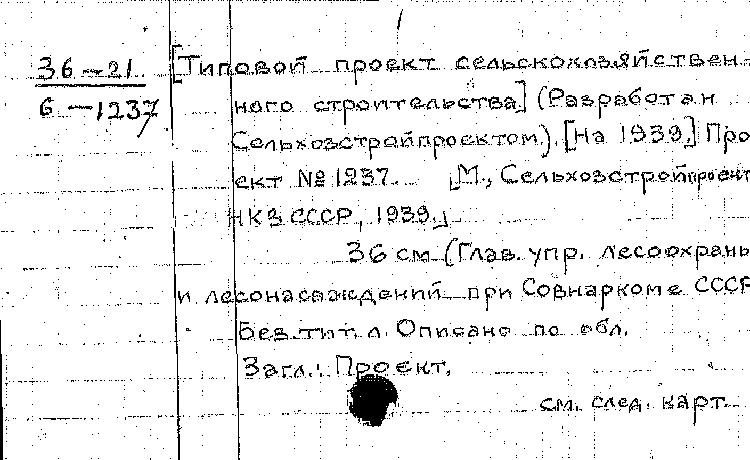 1
36—21. [Типовой проект сельскохозяйствен-
6—1237 ного строительства] (Разработан
Сельхозстройпроектом). [На 1939.] Про
ект № 1237. [М., Сельхозстройпроект
НКЗ СССР, 1939.]
36 см (Глав. упр. лесоохраны
и лесонасаждений при Совнаркоме СССР
Без тит. л. Описано по обл.
Загл.: Проект.
см. след. карт.